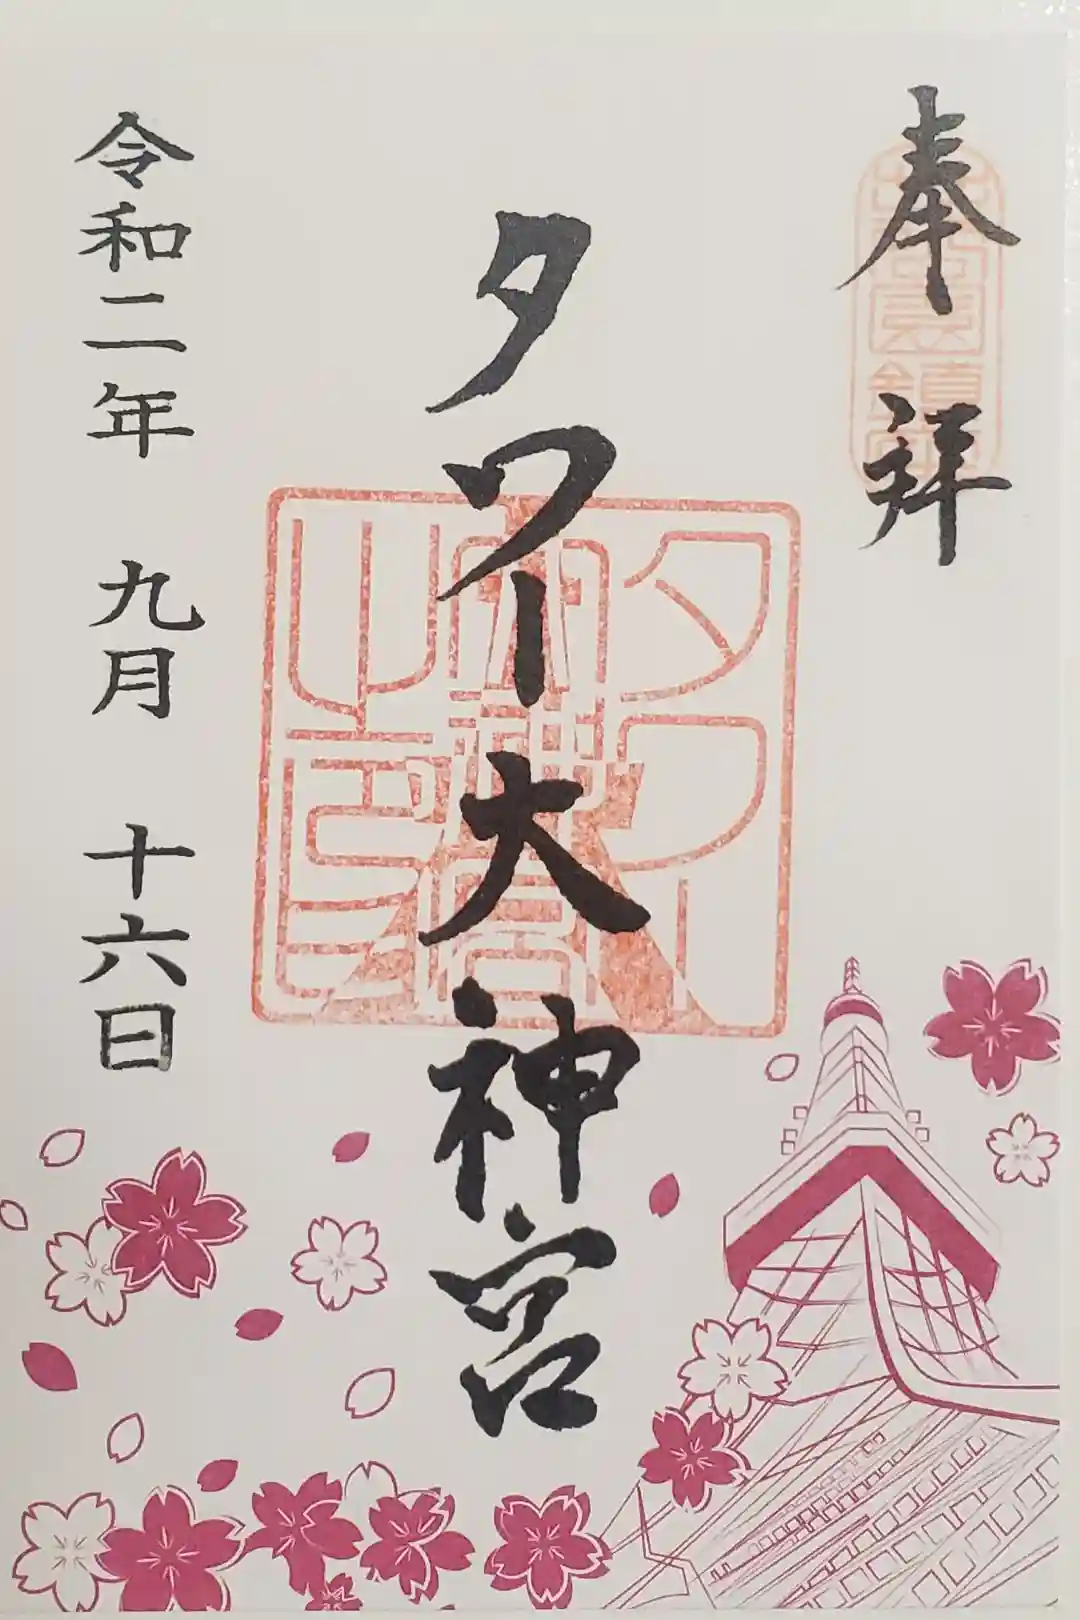 奉拝
タワー大神宮
令和二年 九月 十六日